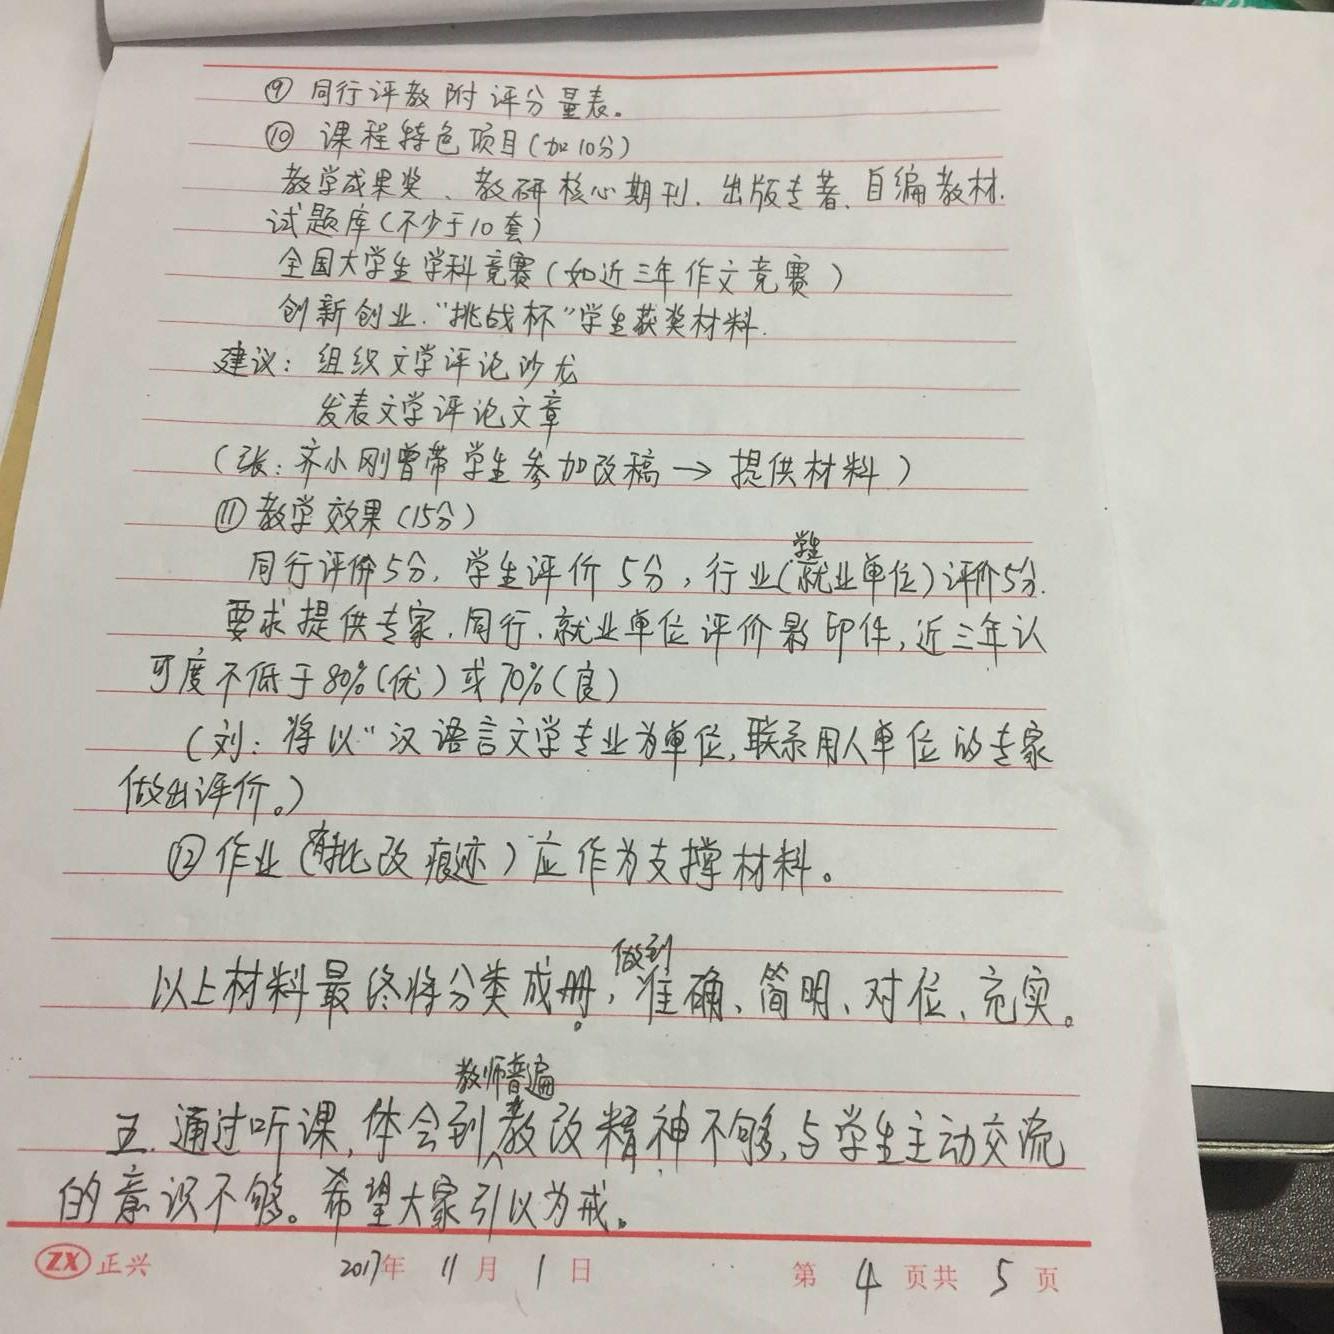 ⑨ 同行评教附评分量表。
⑩ 课程特色项目(加10分)
教学成果奖、教研核心期刊、出版专著、自编教材、
试题库(不少于10套)
全国大学生学科竞赛(如近三年作文竞赛)
创新创业、“挑战杯”学生获奖材料.
建议: 组织文学评论沙龙
发表文学评论文章
(张: 齐小刚曾带学生参加改稿→提供材料)
⑪ 教学效果(15分)
学生
同行评价5分, 学生评价5分, 行业(就业单位)评价5分.
要求提供专家、同行、就业单位评价影印件, 近三年认
可度不低于80%(优)或70%(良)
(刘: 将以“汉语言文学专业为单位, 联系用人单位的专家
做出评价。)
⑫ 作业(有批改痕迹)应作为支撑材料。
做到
以上材料最终将分类成册, 准确、简明、对位、充实。
教师普遍
五. 通过听课, 体会到教改精神不够, 与学生主动交流
的意识不够。希望大家引以为戒。
ZX 正兴 2017年 11月 1日 第 4 页共 5 页